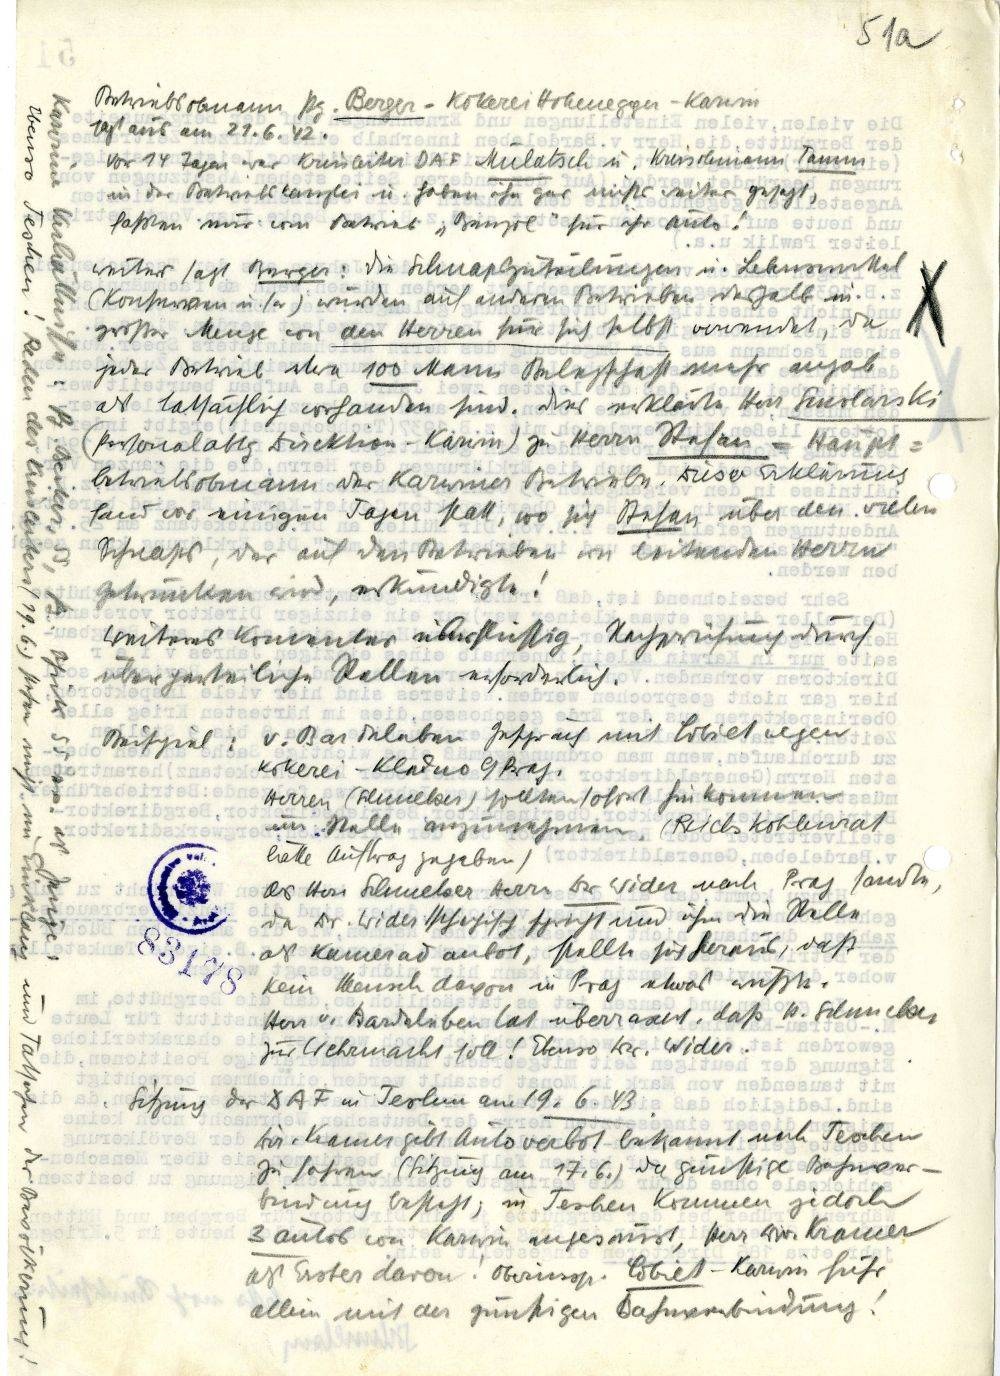 51a
Betriebsobmann Pg. Berger - Kokerei Hohenegger - Karwin
sagt aus am 21.6.42.
Vor 14 Tagen war Kreisleiter DAF Mulatsch u. Kreisobmann Tamm
in der Betriebskanzlei u. haben ihn gar nichts weiter gefragt,
faßten nur vom Betrieb „Benzol" für ihr Auto!
weiter sagt Berger: die Schnapszuteilungen u. Lebensmittel
(Konserven u.s.w.) wurden auf anderen Betrieben deshalb in
großer Menge von den Herren für sich selbst verwendet, da
jeder Betrieb etwa 100 Mann Belegschaft mehr angab
als tatsächlich vorhanden sind. Dies erklärte Herr Smolarski
(Personalabtlg Direktion - Karwin) zu Herrn Stefan = Haupt=
betriebsobmann der Karwiner Betriebe. Diese Erklärung
fand vor einigen Tagen statt, wo sich Stefan über den vielen
Schnaps, der auf den Betrieben von leitenden Herrn
getrunken wird, erkundigte!
Weiteres Komentar überflüssig, Nachprüfung durch
überparteiliche Stellen erforderlich.
Beispiel: v. Bardeleben Gespräch mit Cobiet wegen
Kokerei - Kladno b/Prag.
Herren (Schmelzer) sollten sofort hinkommen
um Stelle anzunehmen (Reichskohlenrat
hätte Auftrag gegeben)
Als Herr Schmelzer Herrn Dr. Wider nach Prag sandte,
da Dr. Wider tschechisch spricht und ihm die Stelle
als Kamerad anbot, stellte sich heraus, daß
kein Mensch davon in Prag etwas wußte.
Herr v. Bardeleben tat überrascht, daß H. Schmelzer
zur Wehrmacht soll! Ebenso Dr. Wider.
Sitzung der DAF in Teschen am 19.6.43.
Dir. Kramer gibt Autoverbot bekannt nach Teschen
zu fahren (Sitzung am 17.6.) da günstige Bahnver-
bindung besteht; in Teschen kommen jedoch
3 Autos von Karwin angesaust, Herr Dir. Kramer
als Erster davon! Oberinsp. Cobiet - Karwin fuhr
allein mit der günstigen Bahnverbindung!
Karwiner Verhältnisse:
Ebenso Teschen! Reden des Kreisleiters (19.6.) stehen nicht im Einklang mit Tatsachen der Bevölkerung!
83178